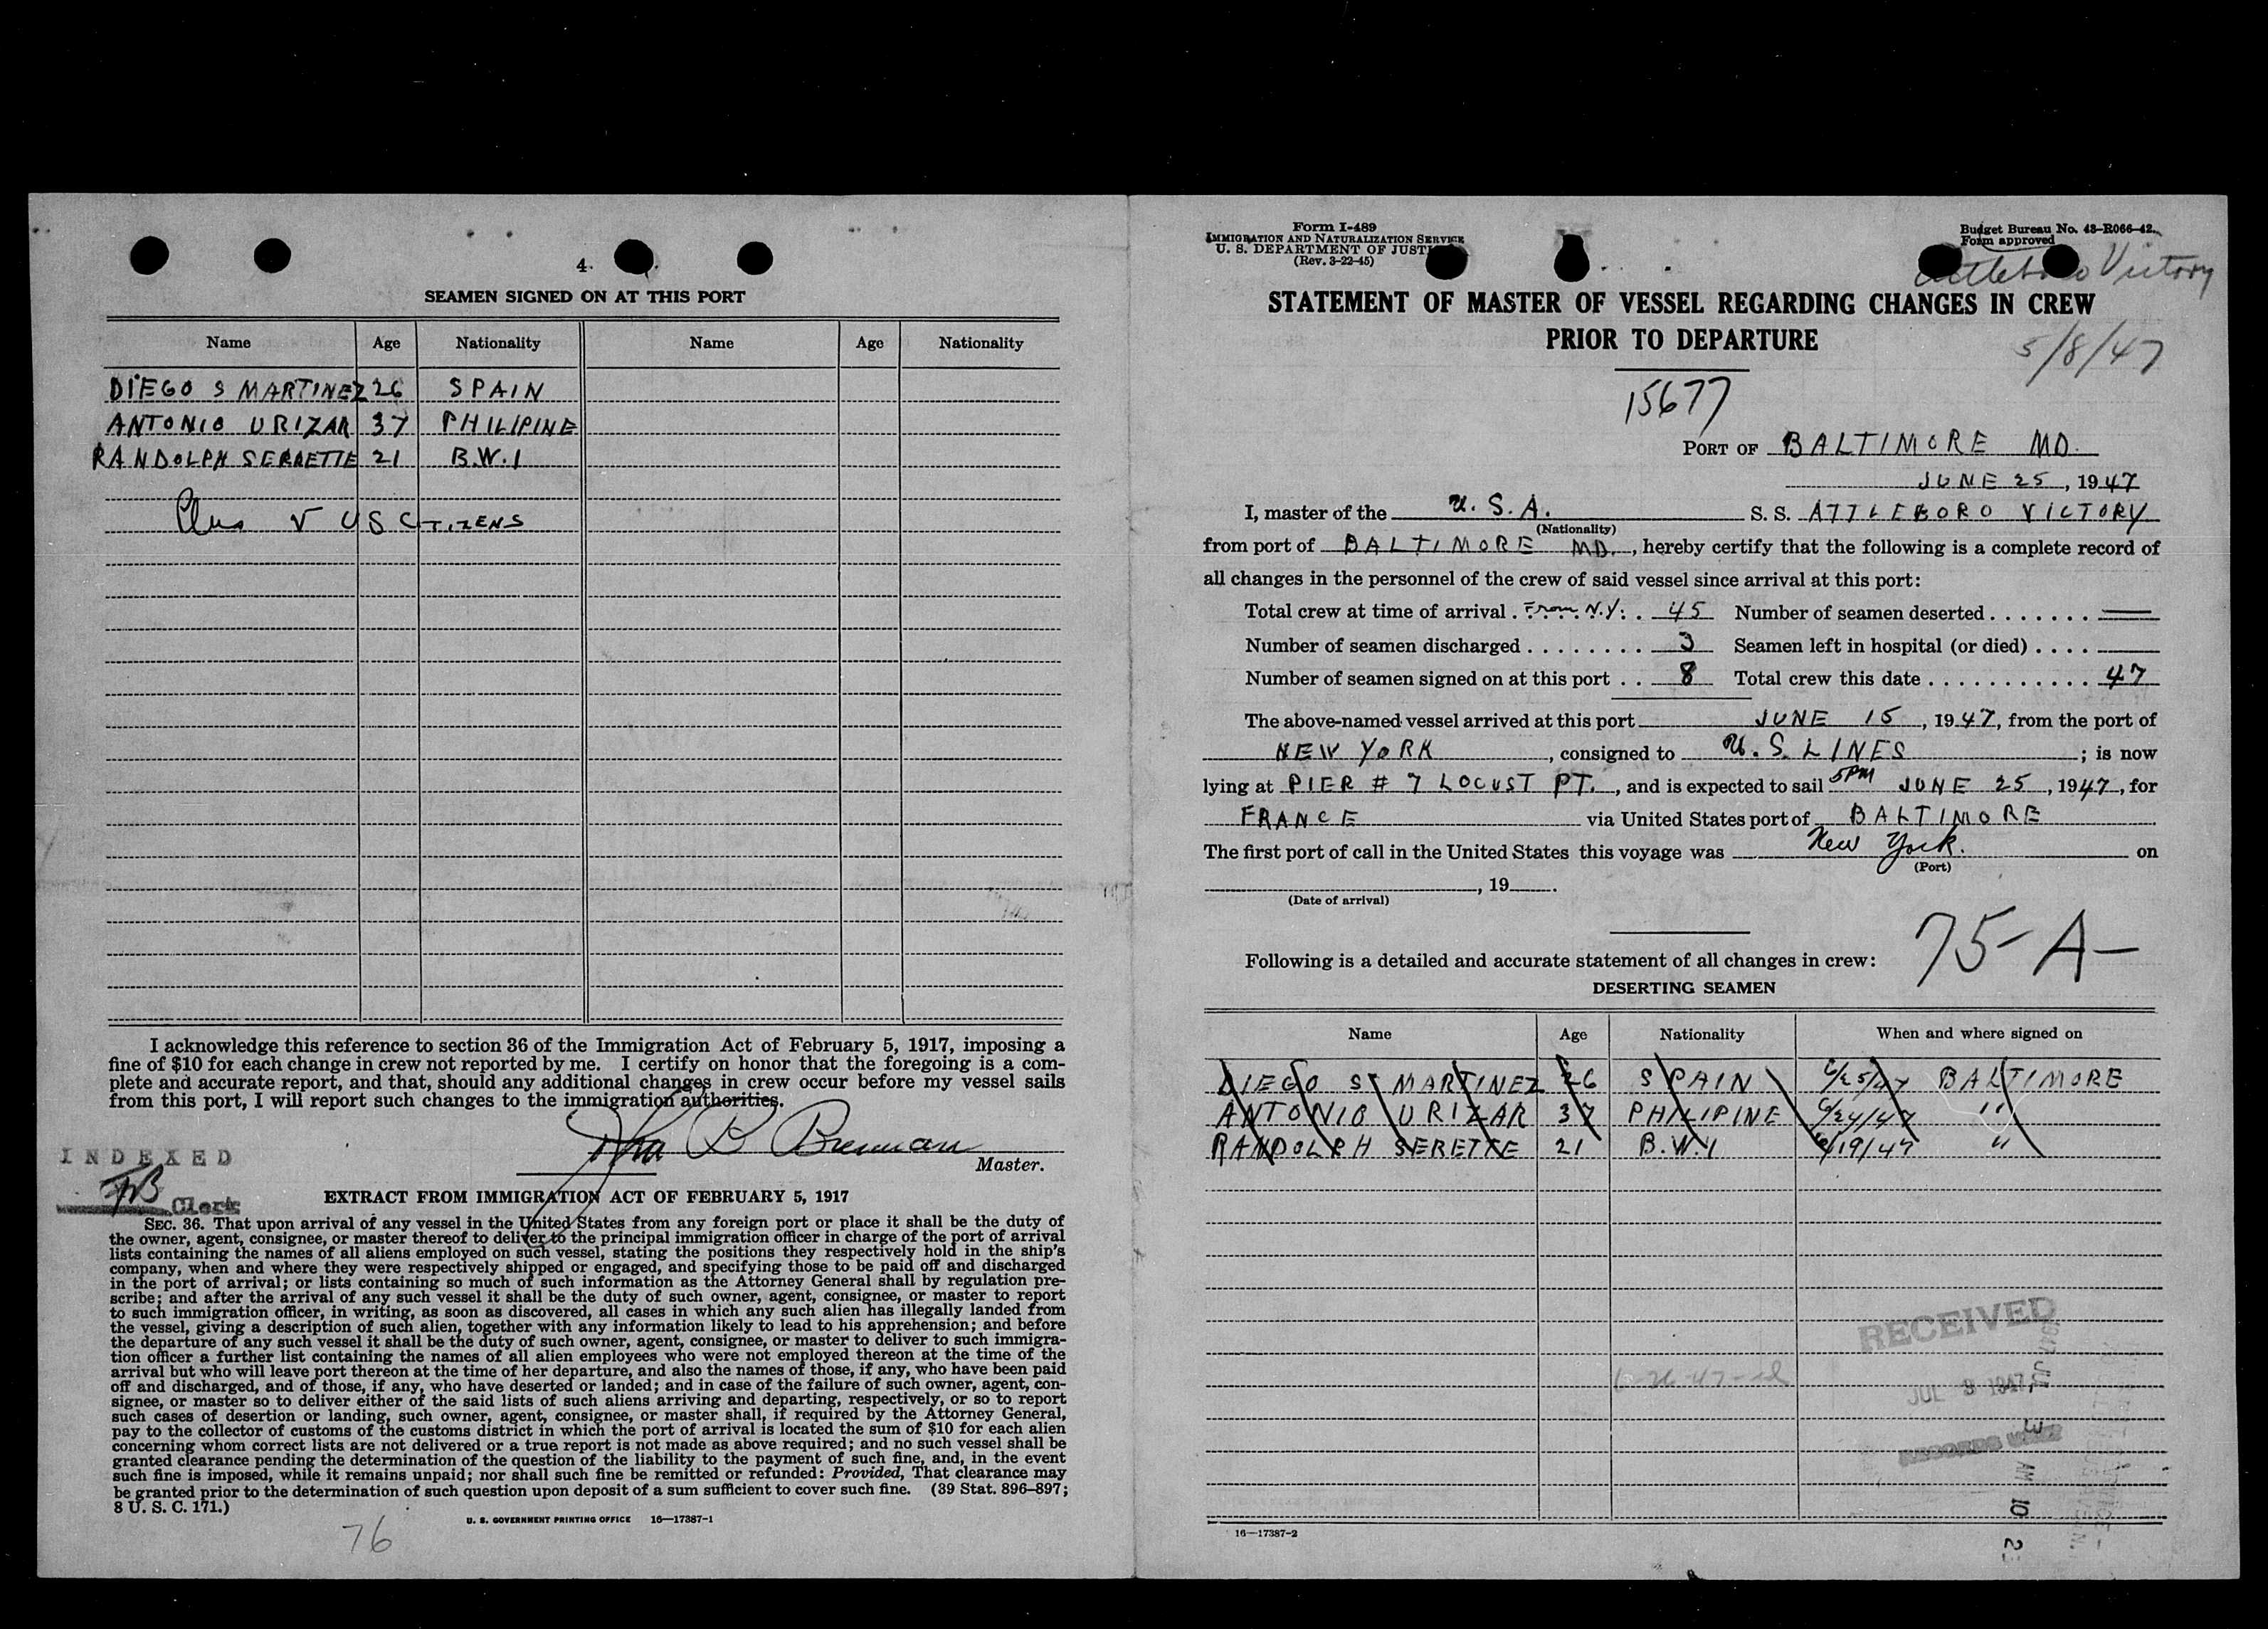 4.
SEAMEN SIGNED ON AT THIS PORT
Name Age Nationality Name Age Nationality
DIEGO S MARTINEZ 26 SPAIN
ANTONIO URIZAR 37 PHILIPINE
RANDOLPH SERRETTE 21 B.W.I
Plus V US CITIZENS
I acknowledge this reference to section 36 of the Immigration Act of February 5, 1917, imposing a
fine of $10 for each change in crew not reported by me. I certify on honor that the foregoing is a com-
plete and accurate report, and that, should any additional changes in crew occur before my vessel sails
from this port, I will report such changes to the immigration authorities.
John B Brennan
Master.
INDEXED
Clerk
EXTRACT FROM IMMIGRATION ACT OF FEBRUARY 5, 1917
SEC. 36. That upon arrival of any vessel in the United States from any foreign port or place it shall be the duty of
the owner, agent, consignee, or master thereof to deliver to the principal immigration officer in charge of the port of arrival
lists containing the names of all aliens employed on such vessel, stating the positions they respectively hold in the ship's
company, when and where they were respectively shipped or engaged, and specifying those to be paid off and discharged
in the port of arrival; or lists containing so much of such information as the Attorney General shall by regulation pre-
scribe; and after the arrival of any such vessel it shall be the duty of such owner, agent, consignee, or master to report
to such immigration officer, in writing, as soon as discovered, all cases in which any such alien has illegally landed from
the vessel, giving a description of such alien, together with any information likely to lead to his apprehension; and before
the departure of any such vessel it shall be the duty of such owner, agent, consignee, or master to deliver to such immigra-
tion officer a further list containing the names of all alien employees who were not employed thereon at the time of the
arrival but who will leave port thereon at the time of her departure, and also the names of those, if any, who have been paid
off and discharged, and of those, if any, who have deserted or landed; and in case of the failure of such owner, agent, con-
signee, or master so to deliver either of the said lists of such aliens arriving and departing, respectively, or so to report
such cases of desertion or landing, such owner, agent, consignee, or master shall, if required by the Attorney General,
pay to the collector of customs of the customs district in which the port of arrival is located the sum of $10 for each alien
concerning whom correct lists are not delivered or a true report is not made as above required; and no such vessel shall be
granted clearance pending the determination of the question of the liability to the payment of such fine, and, in the event
such fine is imposed, while it remains unpaid; nor shall such fine be remitted or refunded: Provided, That clearance may
be granted prior to the determination of such question upon deposit of a sum sufficient to cover such fine. (39 Stat. 896–897;
8 U. S. C. 171.)
U. S. GOVERNMENT PRINTING OFFICE 16—17387-1
76
Form I-489
IMMIGRATION AND NATURALIZATION SERVICE
U. S. DEPARTMENT OF JUSTICE
(Rev. 3-22-45)
Budget Bureau No. 43-R066-42.
Form approved
Attleboro Victory
STATEMENT OF MASTER OF VESSEL REGARDING CHANGES IN CREW
PRIOR TO DEPARTURE
5/8/47
15677
PORT OF BALTIMORE MD.
JUNE 25, 1947
I, master of the U.S.A. S. S. ATTLEBORO VICTORY
(Nationality)
from port of BALTIMORE MD., hereby certify that the following is a complete record of
all changes in the personnel of the crew of said vessel since arrival at this port:
Total crew at time of arrival From N.Y. 45 Number of seamen deserted
Number of seamen discharged 3 Seamen left in hospital (or died)
Number of seamen signed on at this port 8 Total crew this date 47
The above-named vessel arrived at this port JUNE 15, 1947, from the port of
NEW YORK, consigned to U.S. LINES; is now
lying at PIER # 7 LOCUST PT., and is expected to sail 5PM JUNE 25, 1947, for
FRANCE via United States port of BALTIMORE
The first port of call in the United States this voyage was New York. on
(Port)
, 19 .
(Date of arrival)
75-A-
Following is a detailed and accurate statement of all changes in crew:
DESERTING SEAMEN
Name Age Nationality When and where signed on
DIEGO S MARTINEZ 26 SPAIN 6/25/47 BALTIMORE
ANTONIO URIZAR 37 PHILIPINE 6/24/47 "
RANDOLPH SERETTE 21 B.W.I 6/19/47 "
RECEIVED
JUL 3 1947
16—17387-2